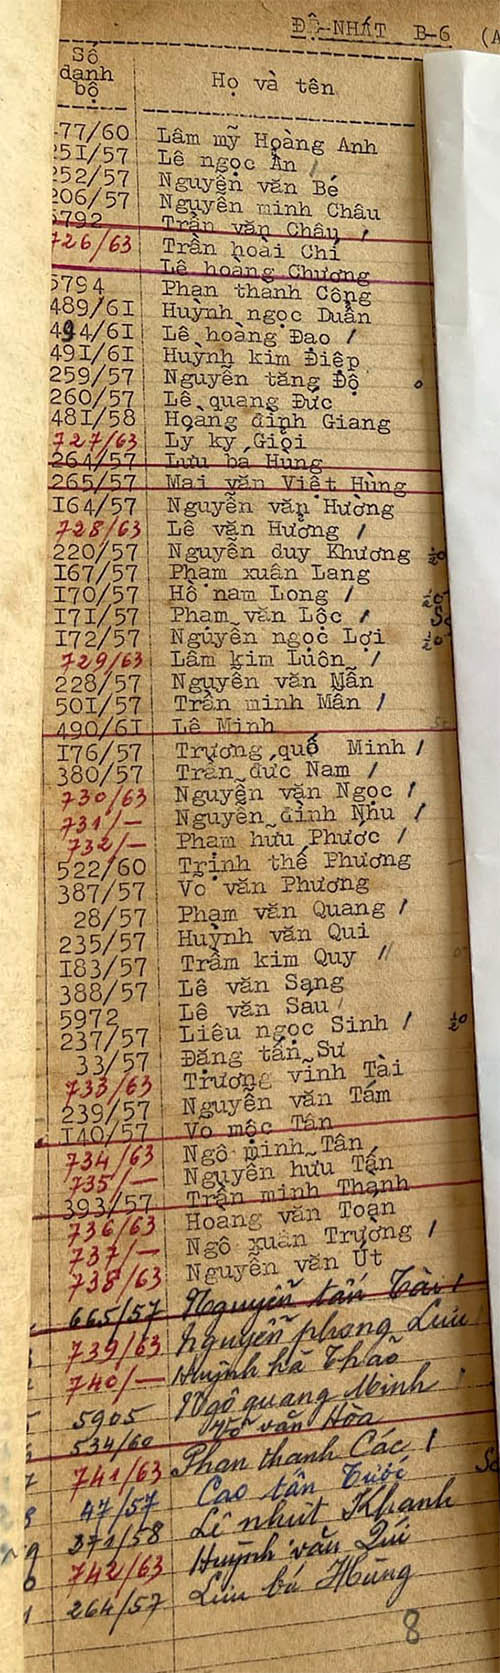 ĐỆ-NHÁT B-6 (A
Số danh bộ Họ và tên
177/60 Lâm mỹ Hoàng Anh
251/57 Lê ngọc Ẩn /
252/57 Nguyễn văn Bé
206/57 Nguyễn minh Châu
5792 Trần văn Châu /
726/63 Trần hoài Chí
Lê hoàng Chương
5794 Phan thanh Công
489/61 Huỳnh ngọc Duẩn
494/61 Lê hoàng Đạo /
491/61 Huỳnh kim Điệp
259/57 Nguyễn tăng Độ
260/57 Lê quang Đức
481/58 Hoàng đình Giang
727/63 Lý ký Giỏi
264/57 Lưu bá Hùng
265/57 Mai văn Việt Hùng
164/57 Nguyễn văn Hường
728/63 Lê văn Hưởng /
220/57 Nguyễn duy Khương
167/57 Phạm xuân Lang
170/57 Hồ nam Long /
171/57 Phạm văn Lộc /
172/57 Nguyễn ngọc Lợi
729/63 Lâm kim Luôn /
228/57 Nguyễn văn Mẫn
501/57 Trần minh Mẫn /
490/61 Lê Minh
176/57 Trương quố Minh /
380/57 Trần đức Nam /
730/63 Nguyễn văn Ngọc /
731/— Nguyễn đình Nhu /
732/— Phạm hưu Phước /
522/60 Trịnh thế Phương
387/57 Võ văn Phương
28/57 Phạm văn Quang /
235/57 Huỳnh văn Qui
183/57 Trầm kim Quy //
388/57 Lê văn Sang
5972 Lê văn Sáu /
237/57 Liêu ngọc Sinh /
33/57 Đặng tấn Sư
733/63 Trương vĩnh Tài
239/57 Nguyễn văn Tám
140/57 Võ mộc Tân
734/63 Ngô minh Tân
735/— Nguyễn hữu Tấn
393/57 Trần minh Thành
736/63 Hoàng văn Toàn
737/— Ngô xuân Trường /
738/63 Nguyễn văn Út
665/57 Nguyễn tấn Tài /
739/63 Nguyễn phong Lưu /
740/— Huỳnh hà Thao
5905 Ngô quang Minh /
534/60 Võ văn Hòa
741/63 Phan thanh Các /
47/57 Cao tấn Tước
371/58 Lê nhứt Khanh
742/63 Huỳnh văn Qúi
264/57 Lưu bá Hùng
8